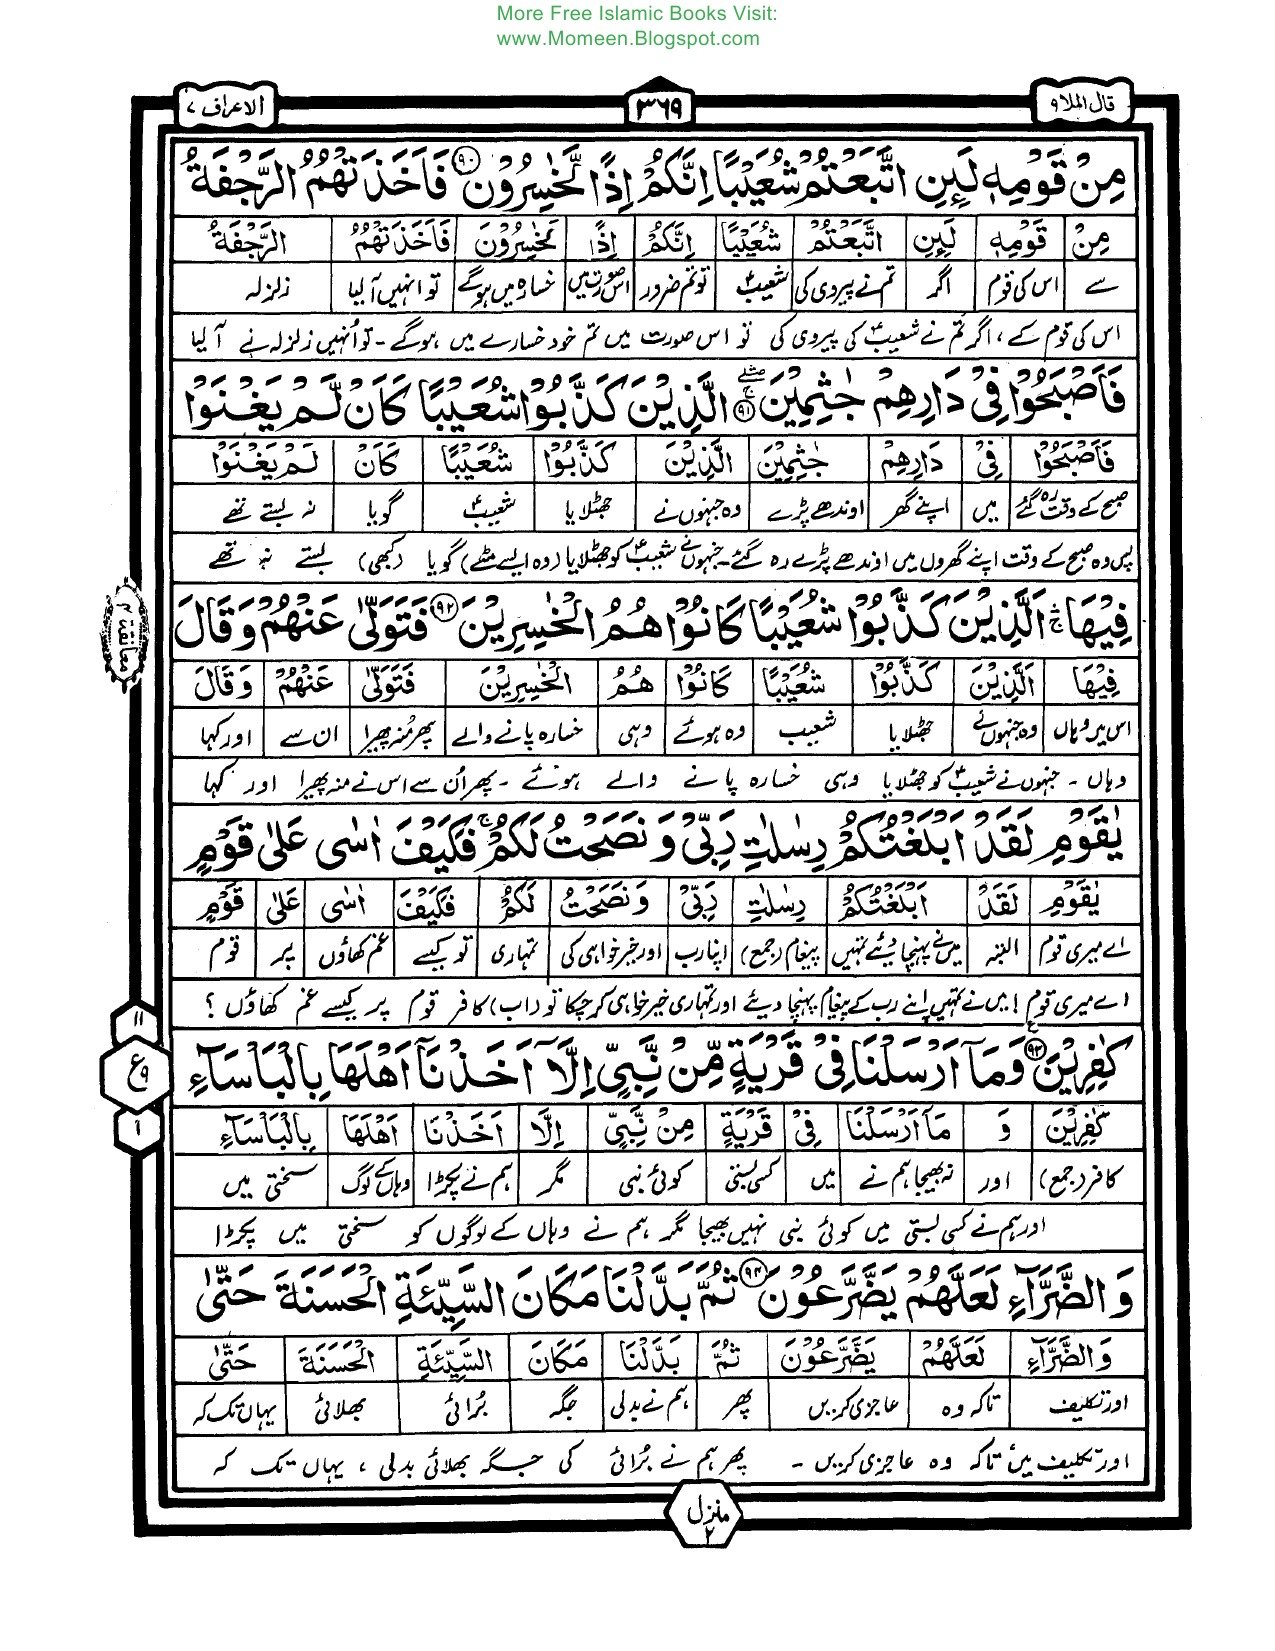 More Free Islamic Books Visit:
www.Momeen.Blogspot.com
قال الملا ۹
۳۶۹
الاعراف ۷
مِنْ قَوْمِهٖ لَئِنِ اتَّبَعْتُمْ شُعَيْبًا اِنَّكُمْ اِذًا لَّخٰسِرُوْنَ ۹۰ فَاَخَذَتْهُمُ الرَّجْفَةُ
مِنْ قَوْمِهٖ لَئِنِ اتَّبَعْتُمْ شُعَيْبًا اِنَّكُمْ اِذًا لَخٰسِرُوْنَ فَاَخَذَتْهُمُ الرَّجْفَةُ
سے اس کی قوم اگر تم نے پیروی کی شعیبؑ تو تم ضرور اس صورت میں خسارہ میں ہوگے تو انہیں آ لیا زلزلہ
اس کی قوم کے، اگر تم نے شعیبؑ کی پیروی کی تو اس صورت میں تم خود خسارے میں ہوگے ۔ تو اُنہیں زلزلہ نے آ لیا
فَاَصْبَحُوْا فِيْ دَارِهِمْ جٰثِمِيْنَ ۹۱ الَّذِيْنَ كَذَّبُوْا شُعَيْبًا كَاَنْ لَّمْ يَغْنَوْا
فَاَصْبَحُوْا فِيْ دَارِهِمْ جٰثِمِيْنَ الَّذِيْنَ كَذَّبُوْا شُعَيْبًا كَاَنْ لَمْ يَغْنَوْا
صبح کے وقت رہ گئے میں اپنے گھر اوندھے پڑے وہ جنہوں نے جھٹلایا شعیبؑ گویا نہ بستے تھے
پس وہ صبح کے وقت اپنے گھروں میں اوندھے پڑے رہ گئے ۔ جنہوں نے شعیبؑ کو جھٹلایا (وہ ایسے مٹے) گویا (کبھی) بستے نہ تھے
فِيْهَا ۛ اَلَّذِيْنَ كَذَّبُوْا شُعَيْبًا كَانُوْا هُمُ الْخٰسِرِيْنَ ۹۲ فَتَوَلّٰى عَنْهُمْ وَقَالَ
معانقة ۲
فِيْهَا اَلَّذِيْنَ كَذَّبُوْا شُعَيْبًا كَانُوْا هُمُ الْخٰسِرِيْنَ فَتَوَلّٰى عَنْهُمْ وَقَالَ
اس میں وہاں وہ جنہوں نے جھٹلایا شعیب وہ ہوئے وہی خسارہ پانے والے پھر منہ پھیرا ان سے اور کہا
وہاں ۔ جنہوں نے شعیبؑ کو جھٹلایا وہی خسارہ پانے والے ہوئے ۔ پھر اُن سے اس نے منہ پھیرا اور کہا
يٰقَوْمِ لَقَدْ اَبْلَغْتُكُمْ رِسٰلٰتِ رَبِّيْ وَنَصَحْتُ لَكُمْ ۚ فَكَيْفَ اٰسٰى عَلٰى قَوْمٍ
يٰقَوْمِ لَقَدْ اَبْلَغْتُكُمْ رِسٰلٰتِ رَبِّيْ وَنَصَحْتُ لَكُمْ فَكَيْفَ اٰسٰى عَلٰى قَوْمٍ
اے میری قوم البتہ میں نے پہنچا دیئے تمہیں پیغام (جمع) اپنا رب اور خیر خواہی کی تمہاری تو کیسے غم کھاؤں پر قوم
اے میری قوم! میں نے تمہیں اپنے رب کے پیغام پہنچا دیئے اور تمہاری خیر خواہی کر چکا تو (اب) کافر قوم پر کیسے غم کھاؤں ؟
كٰفِرِيْنَ ۹۳ وَمَآ اَرْسَلْنَا فِيْ قَرْيَةٍ مِّنْ نَّبِيٍّ اِلَّآ اَخَذْنَآ اَهْلَهَا بِالْبَاْسَآءِ
۱۱
ع ۹
۱
كٰفِرِيْنَ وَ مَآ اَرْسَلْنَا فِيْ قَرْيَةٍ مِنْ نَّبِيٍّ اِلَّا اَخَذْنَا اَهْلَهَا بِالْبَاْسَآءِ
کافر (جمع) اور نہ بھیجا ہم نے میں کسی بستی کوئی نبی مگر ہم نے پکڑا وہاں کے لوگ سختی میں
اور ہم نے کسی بستی میں کوئی نبی نہیں بھیجا مگر ہم نے وہاں کے لوگوں کو سختی میں پکڑا
وَالضَّرَّآءِ لَعَلَّهُمْ يَضَّرَّعُوْنَ ۹۴ ثُمَّ بَدَّلْنَا مَكَانَ السَّيِّئَةِ الْحَسَنَةَ حَتّٰى
وَالضَّرَّآءِ لَعَلَّهُمْ يَضَّرَّعُوْنَ ثُمَّ بَدَّلْنَا مَكَانَ السَّيِّئَةِ الْحَسَنَةَ حَتّٰى
اور تکلیف تاکہ وہ عاجزی کریں پھر ہم نے بدلی جگہ بُرائی بھلائی یہاں تک کہ
اور تکلیف میں تاکہ وہ عاجزی کریں ۔ پھر ہم نے بُرائی کی جگہ بھلائی بدلی ، یہاں تک کہ
منزل ۲